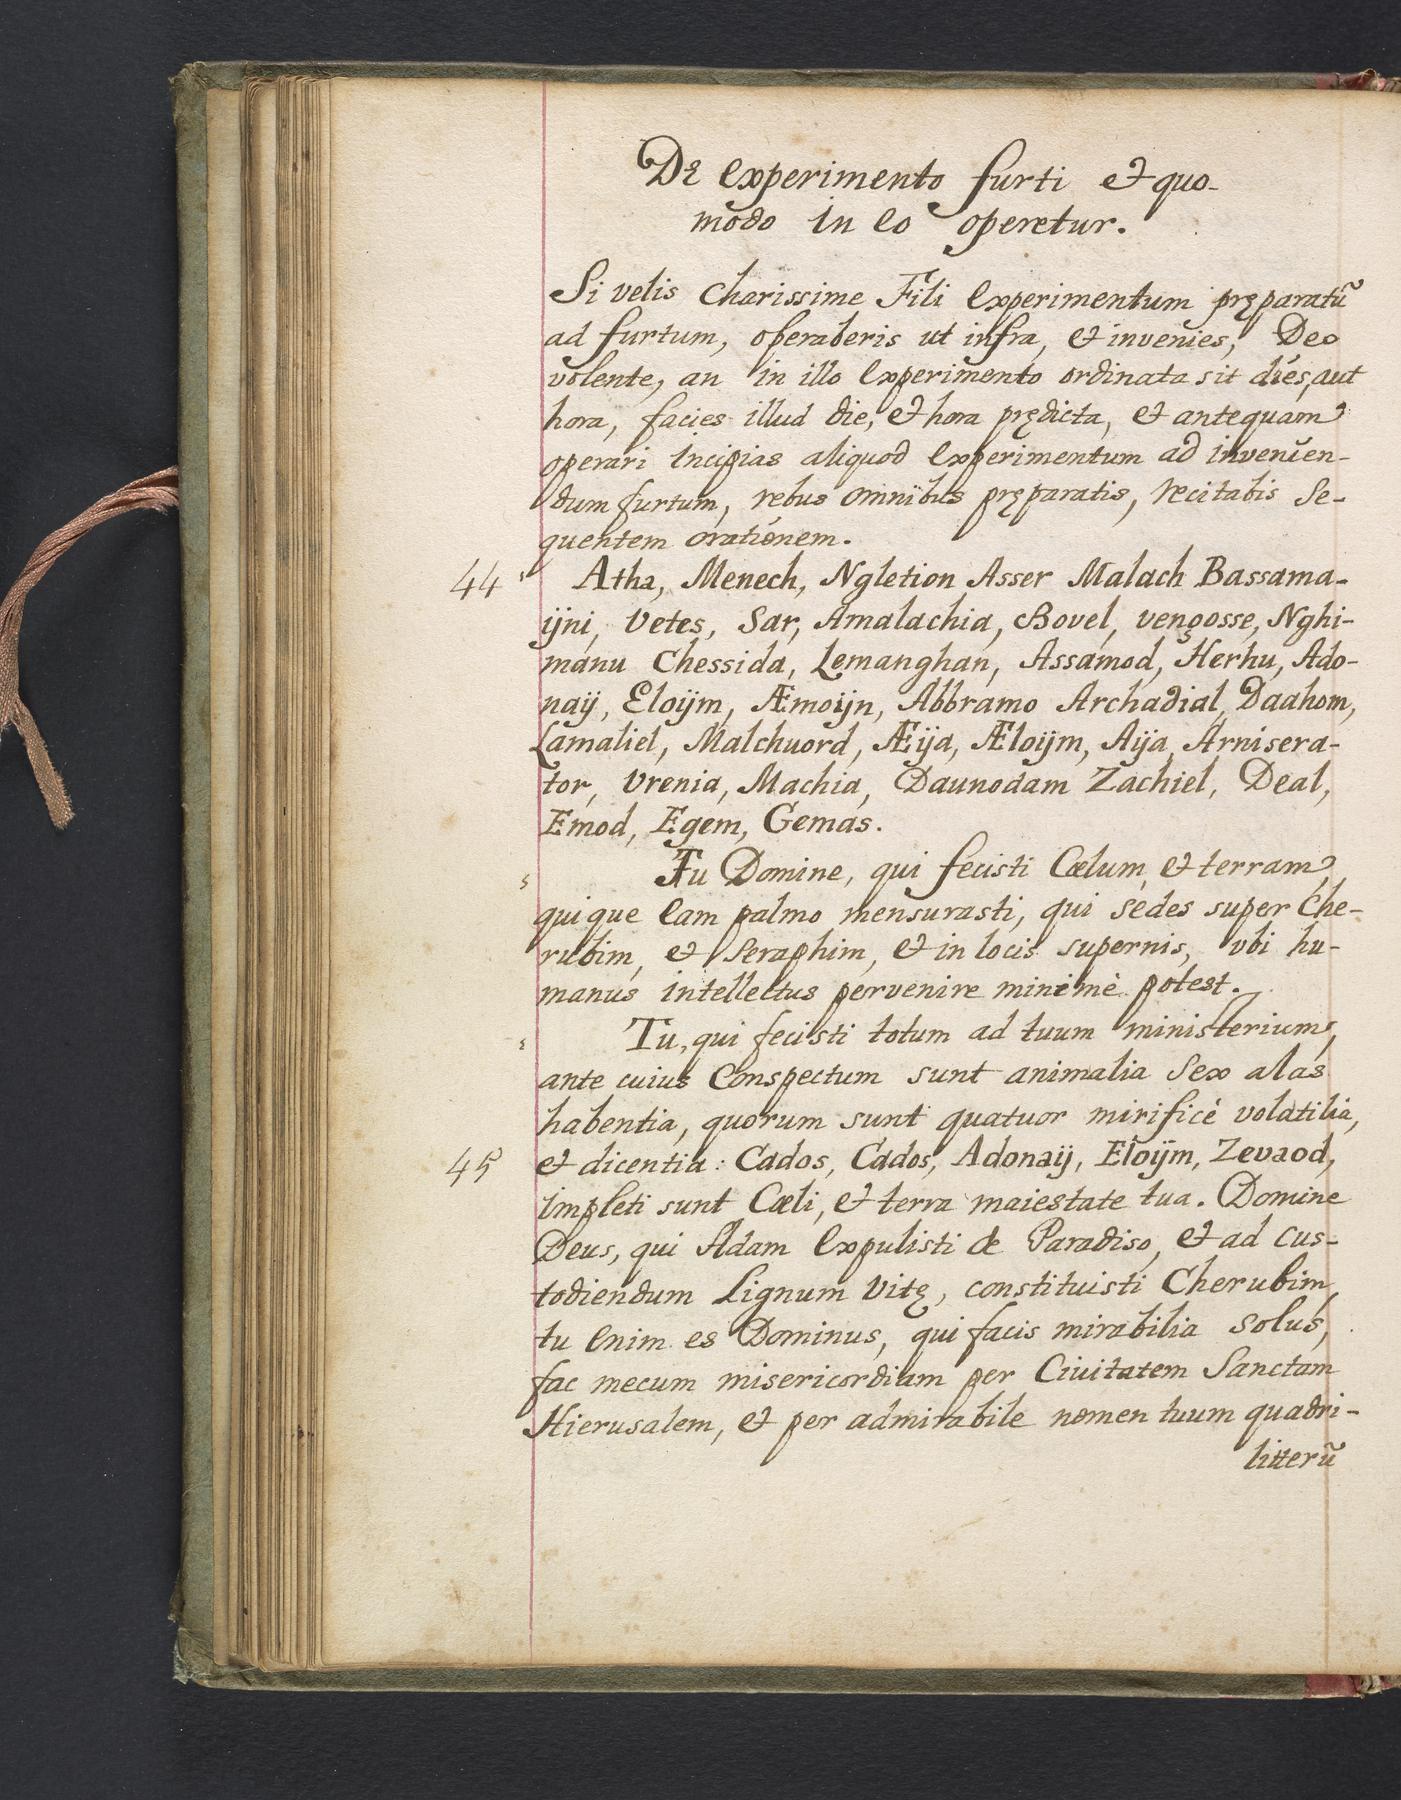 De experimento furti et quo-
modo in eo operetur.
Si velis Charissime Fili experimentum pręparatũ
ad furtum, operaberis ut infra, et invenies, Deo
volente, an in illo experimento ordinata sit dies, aut
hora, facies illud die, et hora prędicta, et antequam
operari incipias aliquod experimentum ad invenien-
dum furtum, rebus omnibus pręparatis, recitabis se-
quentem orationem.
44 Atha, Menech, Ngletion Asser Malach Bassama-
ijni, Vetes, Sar, Amalachia, Bovel, vengosse, Nghi-
manu Chessida, Lemanghan, Assamod, Herhu, Ado-
naij, Eloijm, Æmoijn, Abbramo Archadial, Daahom,
Lamaliel, Malchuord, Æija, Æloijm, Aija, Arnisera-
tor, Vrenia, Machia, Daunodam Zachiel, Deal,
Emod, Egem, Gemas.
Tu Domine, qui fecisti Cœlum, et terram,
quique eam palmo mensurasti, qui sedes super Che-
rubim, et Seraphim, et in locis supernis, vbi hu-
manus intellectus pervenire minimè potest.
Tu, qui fecisti totum ad tuum ministerium,
ante cuius Conspectum sunt animalia sex alas
habentia, quorum sunt quatuor mirificè volatilia,
45 et dicentia: Cados, Cados, Adonaij, Eloijm, Zevaod,
impleti sunt Cœli, et terra maiestate tua. Domine
Deus, qui Adam expulisti de Paradiso, et ad cus-
todiendum Lignum Vitę, constituisti Cherubim,
tu enim es Dominus, qui facis mirabilia solus,
fac mecum misericordiam per Ciuitatem Sanctam
Hierusalem, et per admirabile nomen tuum quadri-
litterũ